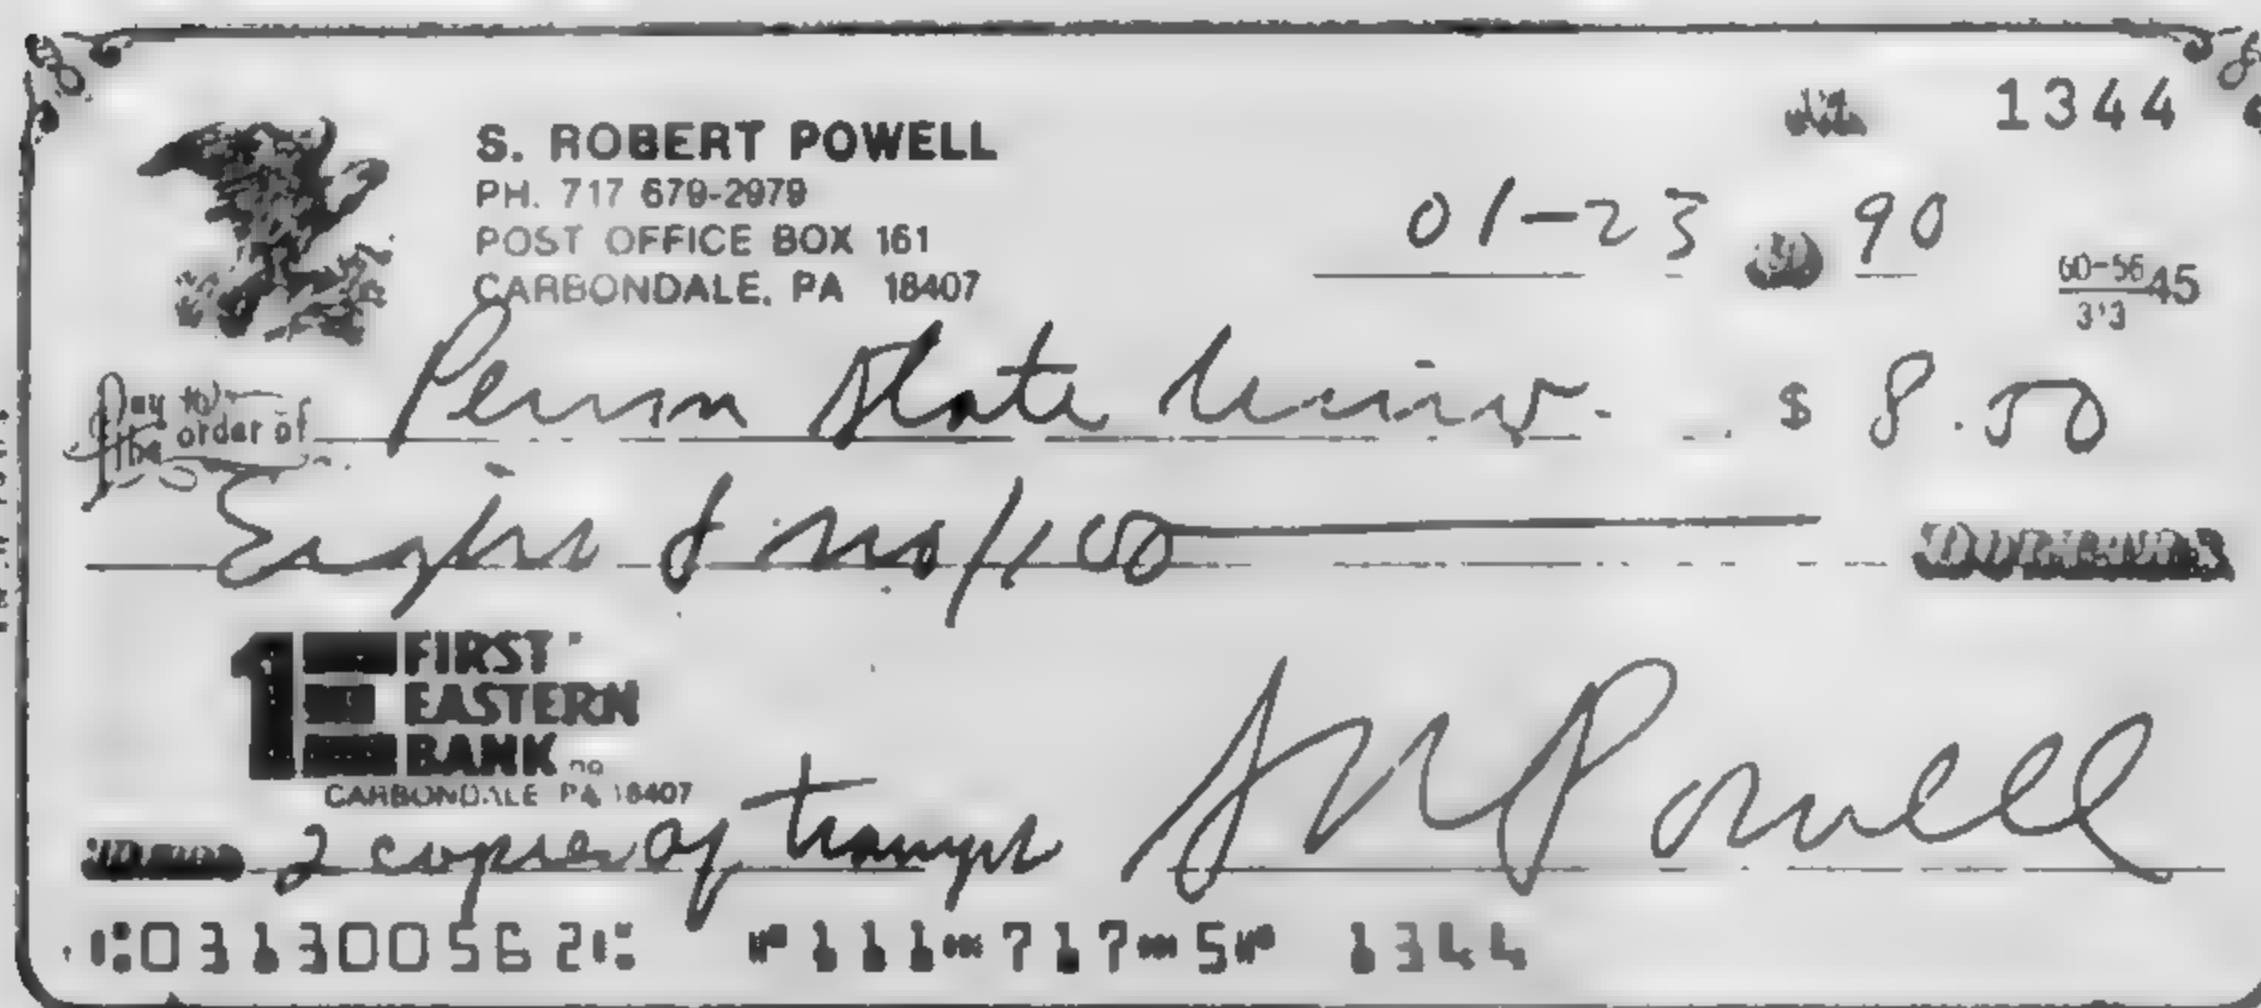 1344
S. ROBERT POWELL
PH. 717 679-2979
POST OFFICE BOX 161
CARBONDALE, PA 18407
01-23 19 90
60-56 45
313
Pay to the order of Penn State Univ. $ 8.50
Eight & no/100 DOLLARS
1 FIRST EASTERN BANK na
CARBONDALE PA 18407
2 copies of
S R Powell
⑆031300562⑆ ⑈111⑉717⑉5⑈ 1344